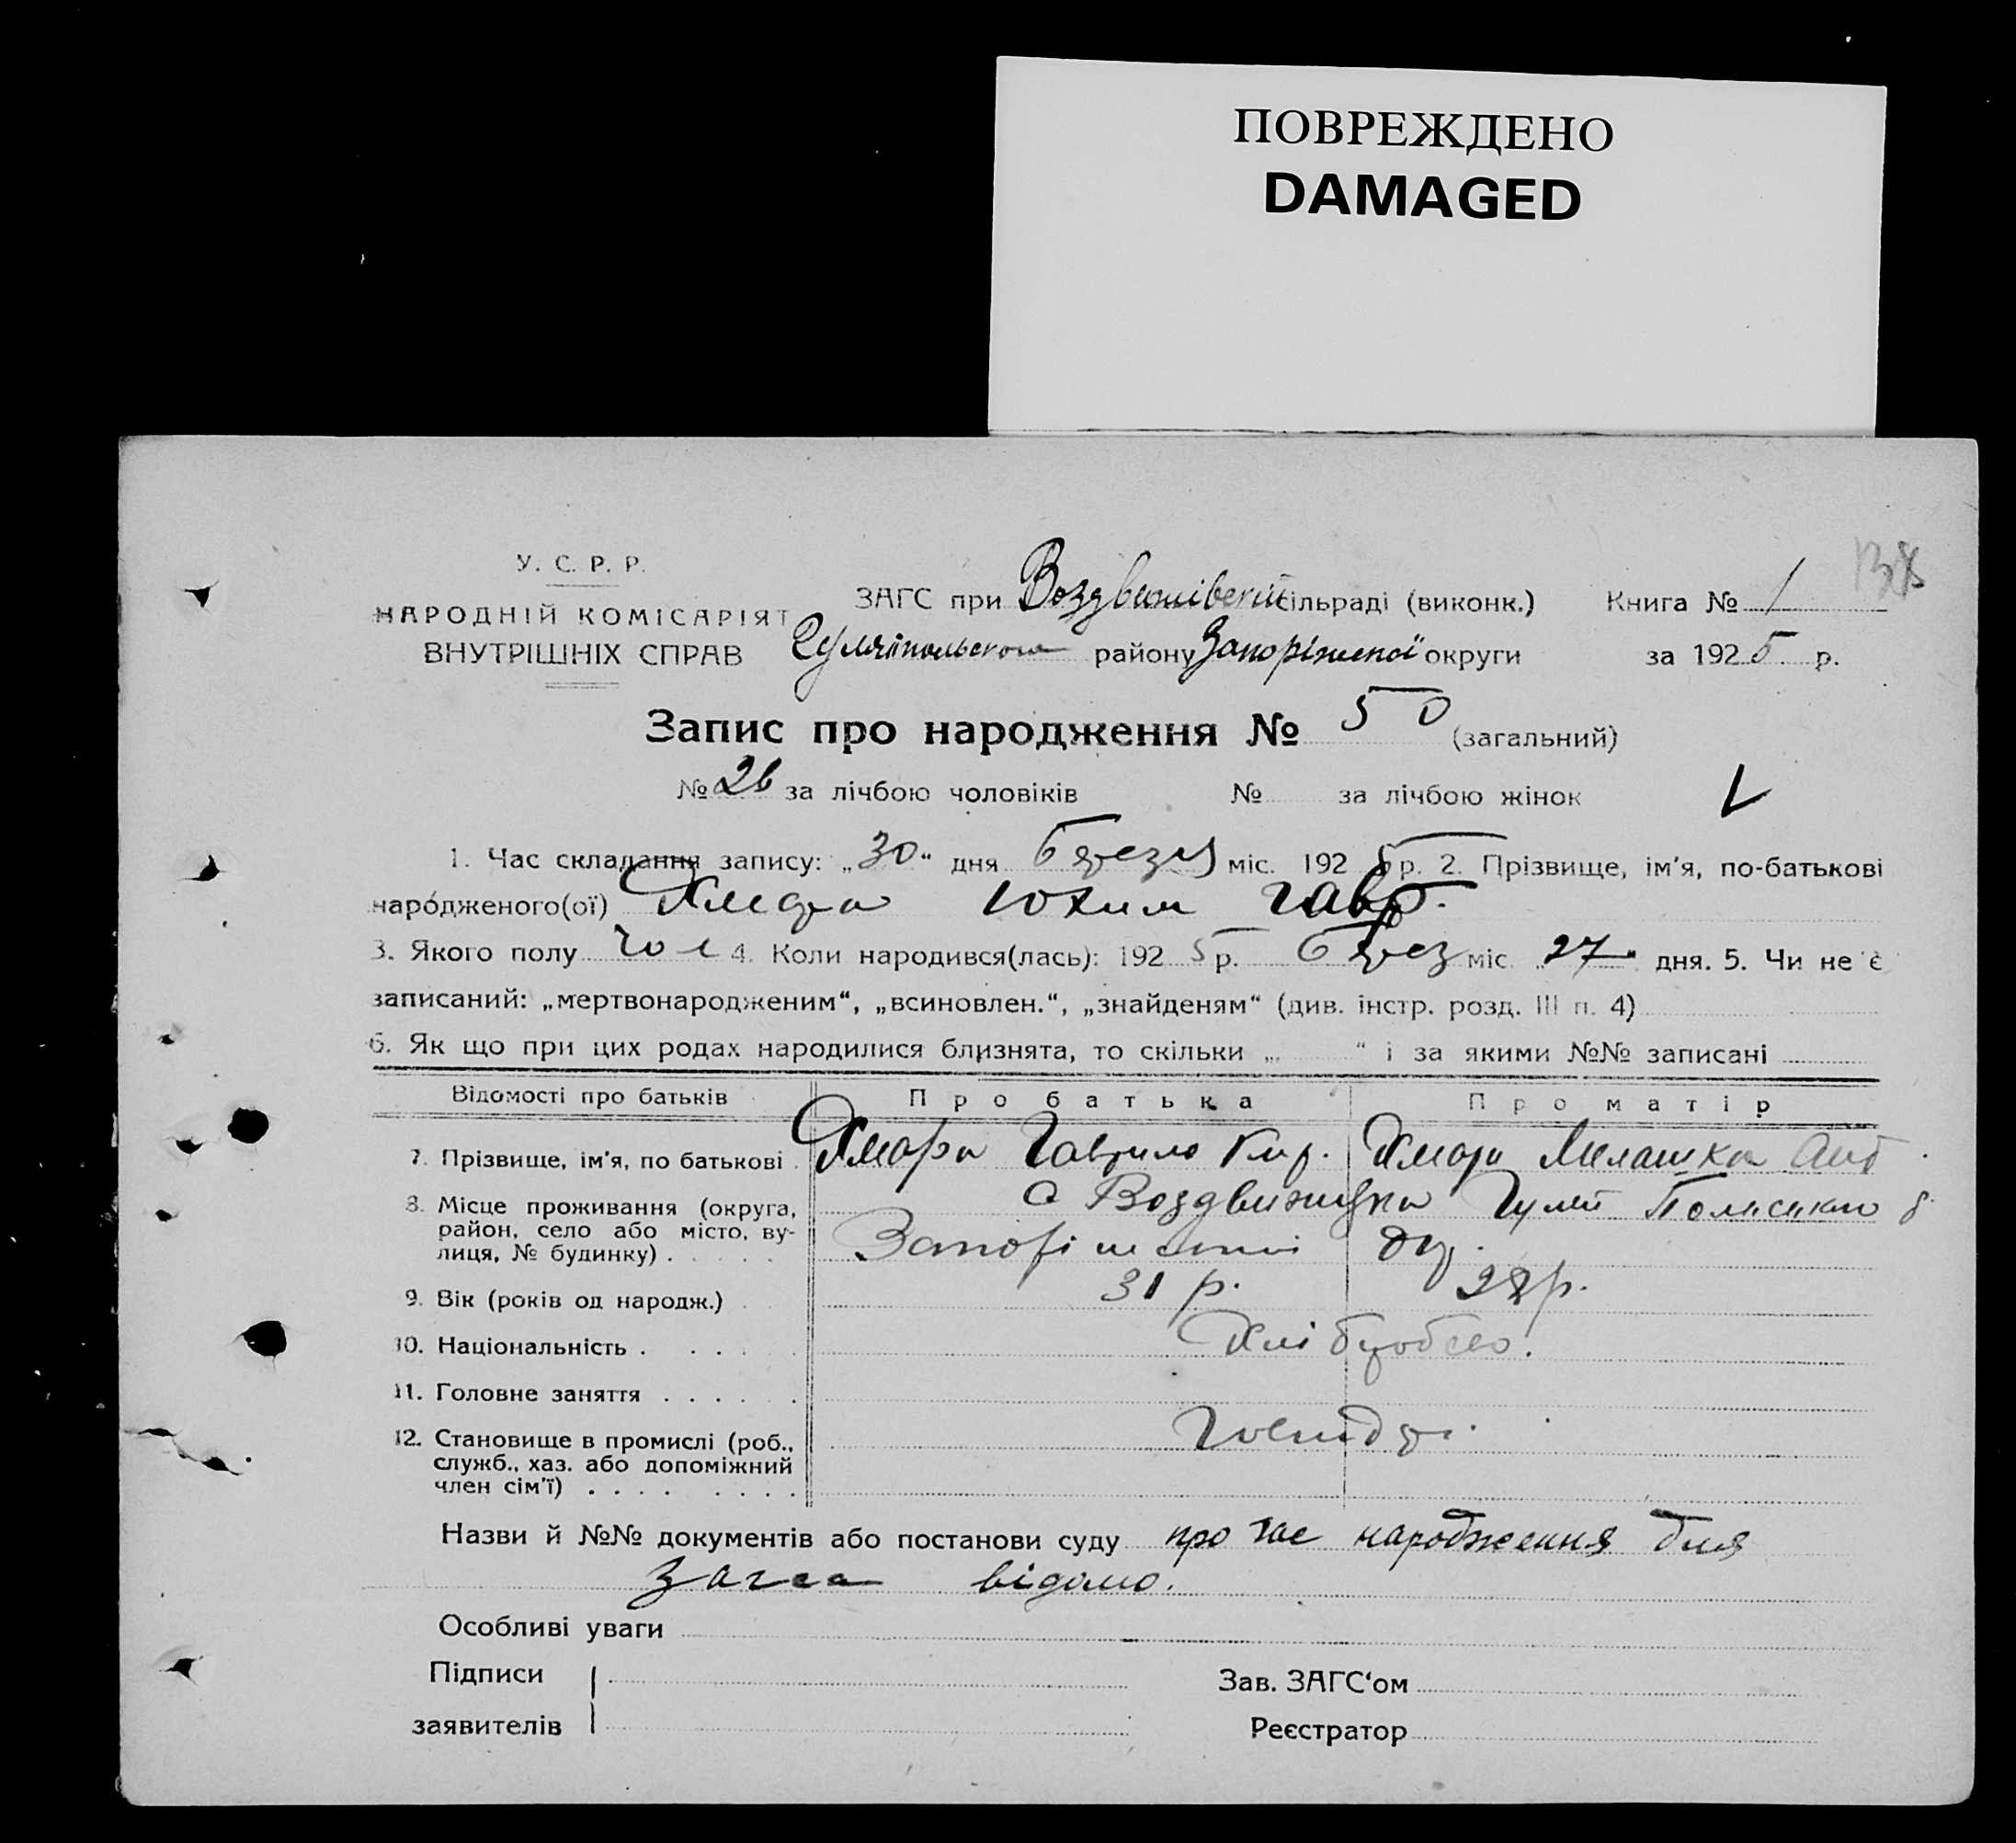 ПОВРЕЖДЕНО
DAMAGED
У. С. Р. Р.
НАРОДНІЙ КОМІСАРІЯТ
ВНУТРІШНІХ СПРАВ
ЗАГС при Воздвижівській сільраді (виконк.) Книга № 1
Гуляйпольського району Запоріжської округи за 1925 р.
Запис про народження № 50 (загальний)
№ 26 за лічбою чоловіків № за лічбою жінок
1. Час складання запису: „30“ дня березня міс. 1925 р. 2. Прізвище, ім'я, по-батькові
народженого(ої) Хмара Юхим Гавр.
3. Якого полу чол 4. Коли народився(лась): 1925 р. берез міс. „27“ дня. 5. Чи не є
записаний: „мертвонародженим“, „всиновлен.“, „знайденям“ (див. інстр. розд. III п. 4)
6. Як що при цих родах народилися близнята, то скільки „ “ і за якими №№ записані
Відомості про батьків Про батька Про матір
7. Прізвище, ім'я, по батькові Хмара Гаврило Кир. Хмара Милашка Ант
8. Місце проживання (округа, район, село або місто, вулиця, № будинку) . . . . . с Воздвижівка Гуляй Польського р.
Запоріжської ок.
9. Вік (років од народж.) . 31 р. 28 р.
10. Національність . . . . . Хлібороб
11. Головне заняття . . . . . .
12. Становище в промислі (роб., служб., хаз. або допоміжний член сім'ї) . . . . . . . .
Назви й №№ документів або постанови суду про час народження для
загса відомо.
Особливі уваги
Підписи
заявителів
Зав. ЗАГС‘ом
Реєстратор